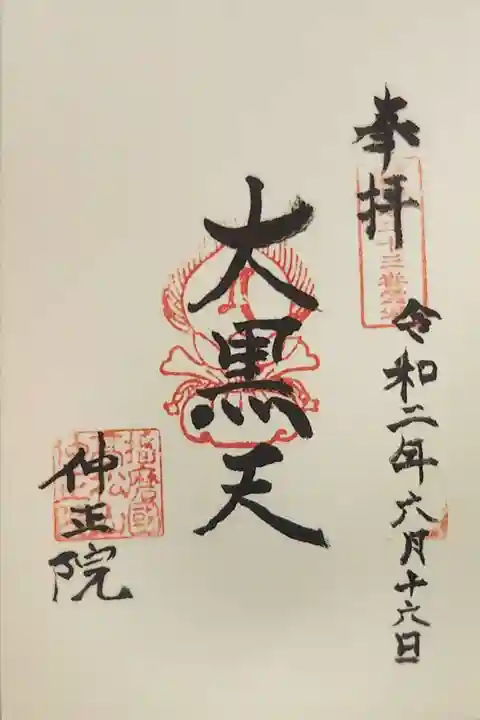 奉拝
令和二年六月十六日
大黒天
仲正院
播磨國